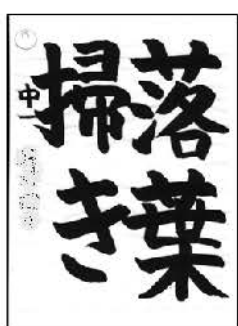 落葉
掃き
中一